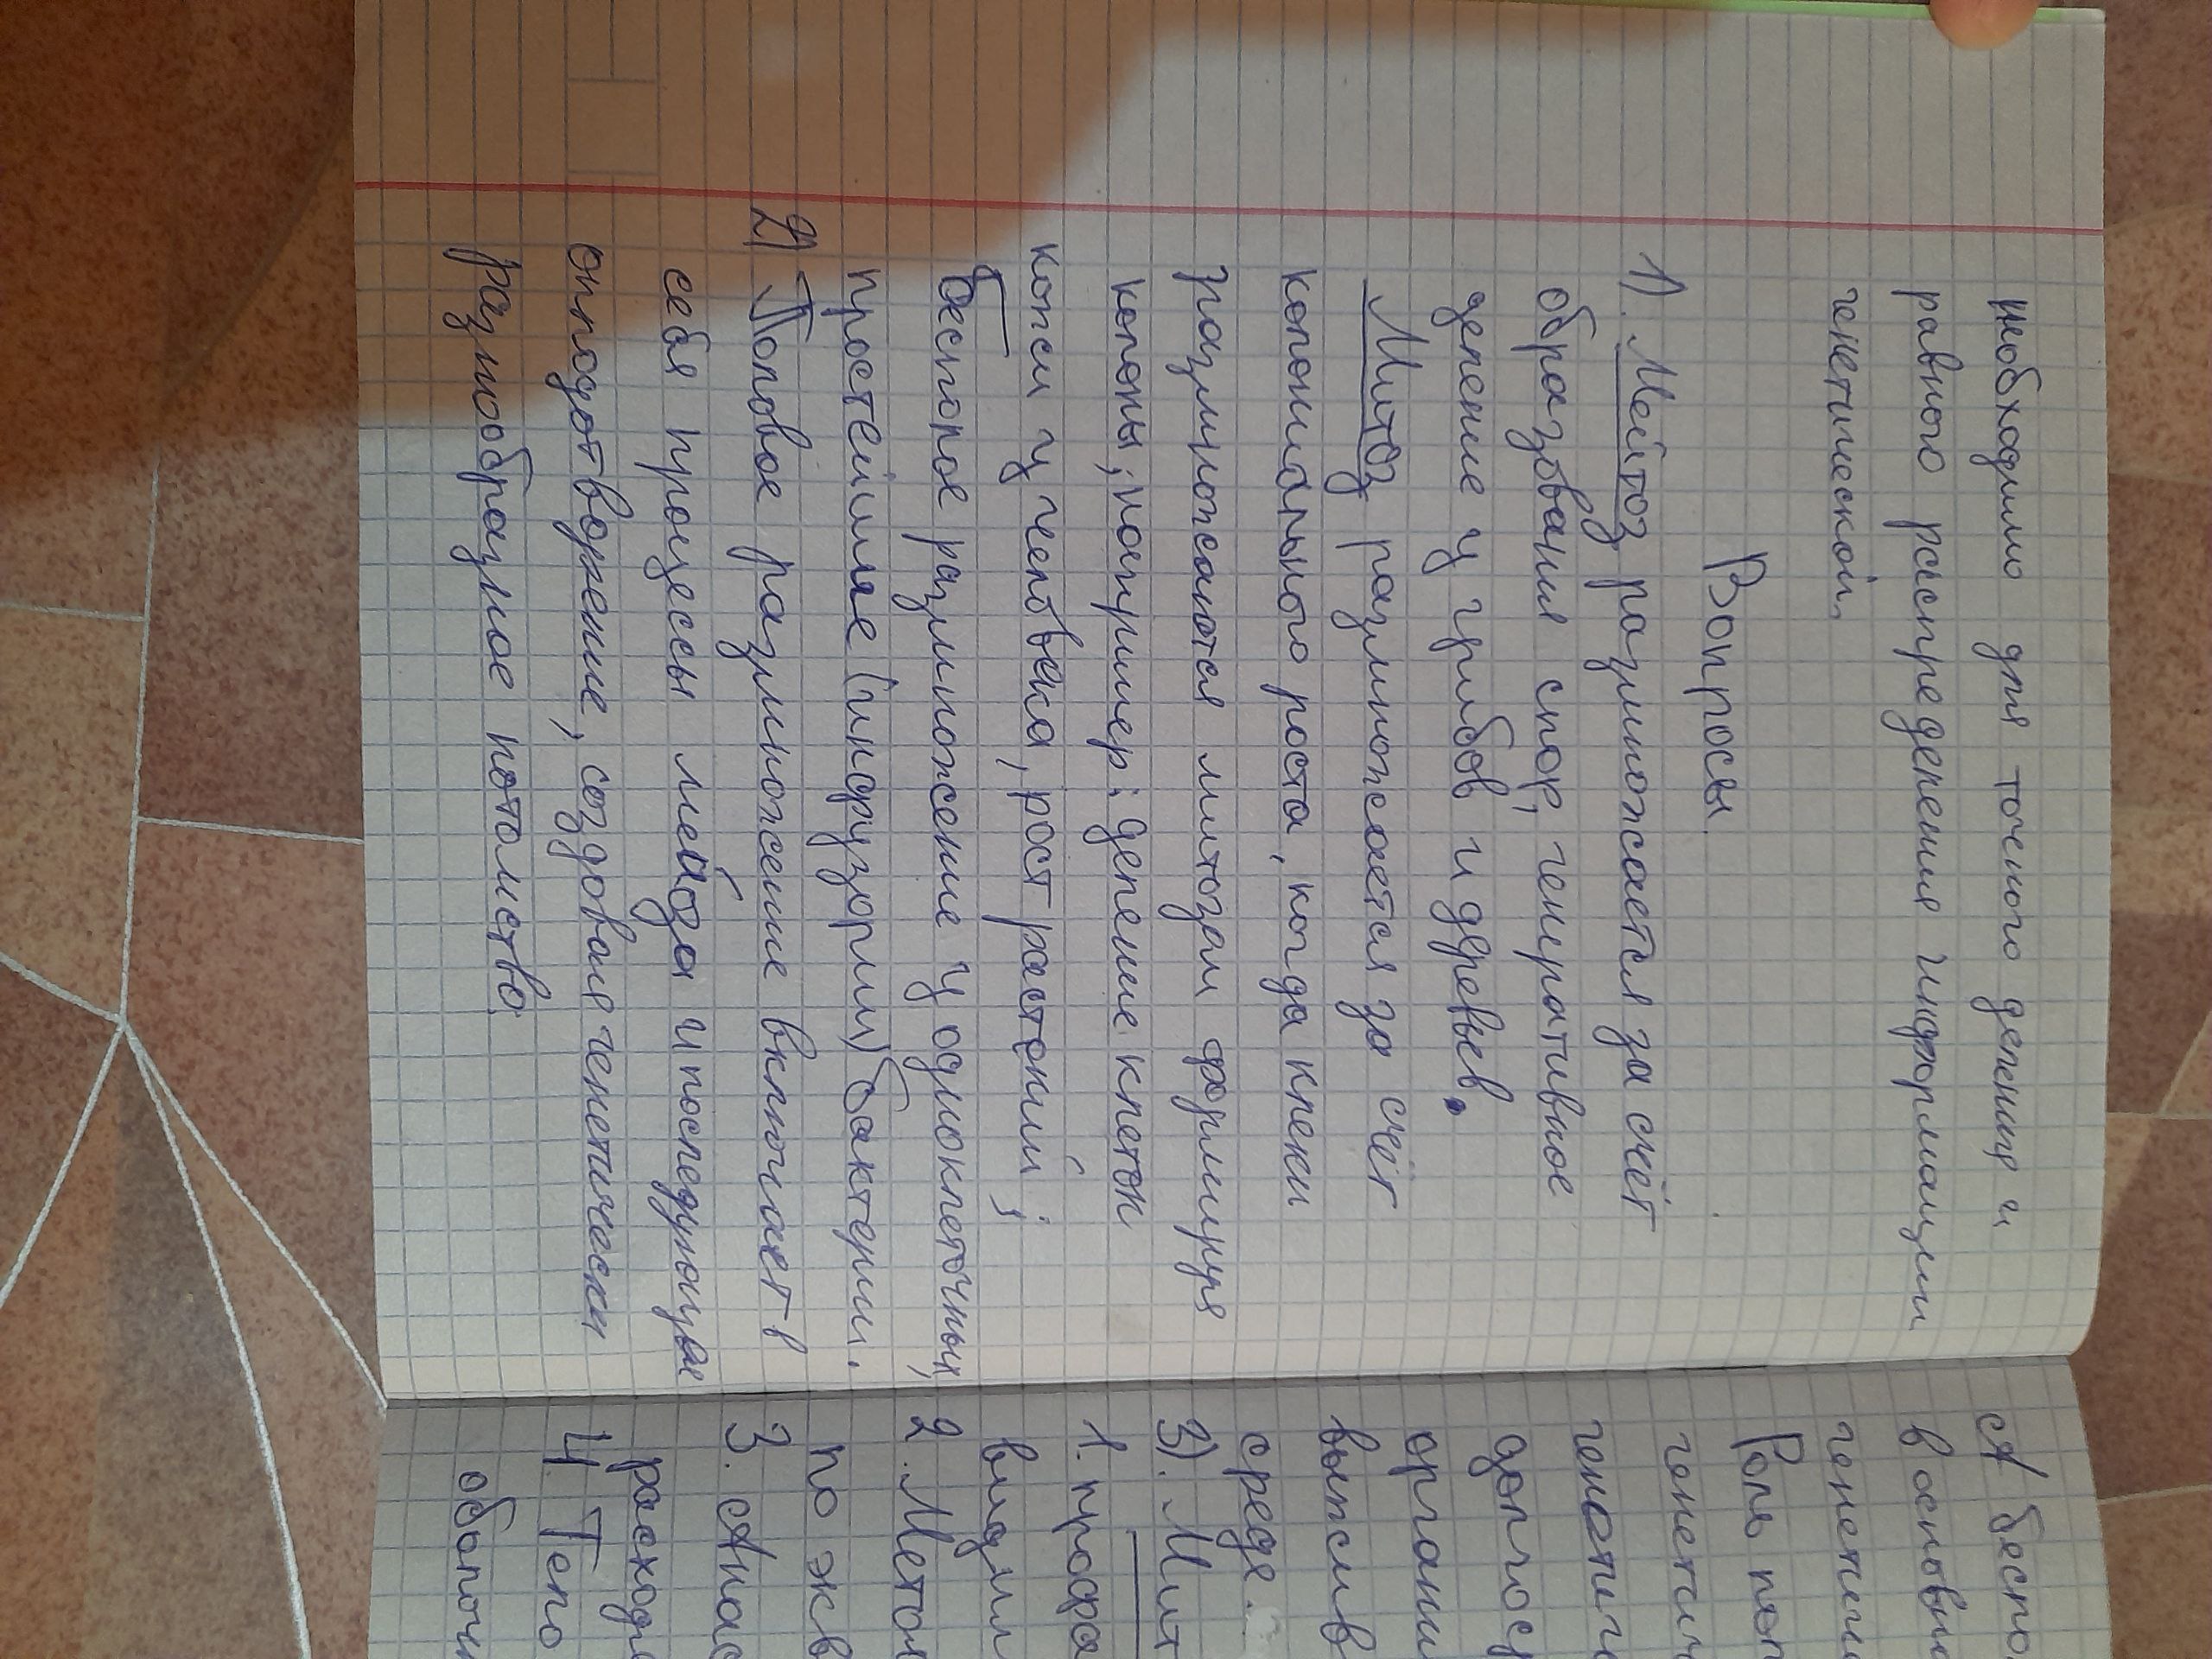 необходимо для точного деления и
равного распределения информации
генетической.
Вопросы.
1). Мейоз размножается за счёт
образования спор, генеративное
деление у грибов и деревьев.
Митоз размножается за счёт
колониального роста, когда клеки
размножаются митозам формируя
колоны; например: деление клеток
кожи у человека, рост растений;
бесполое размножение у одноклеточных,
простейшие (инфузории) бактерии.
2) Половое размножение включает в
себя процессы мейоза и последующие
оплодотворение, создовая генетически
разнообразное потомство.
А беспо
в основно
генетич
Роль пол
генетич
генотич
долгоср
органи
выжив
среде.
3). Мит
1. профа
видим
2. Метоф
по экв
3. Анаф
расходя
4. Тело
оболоч